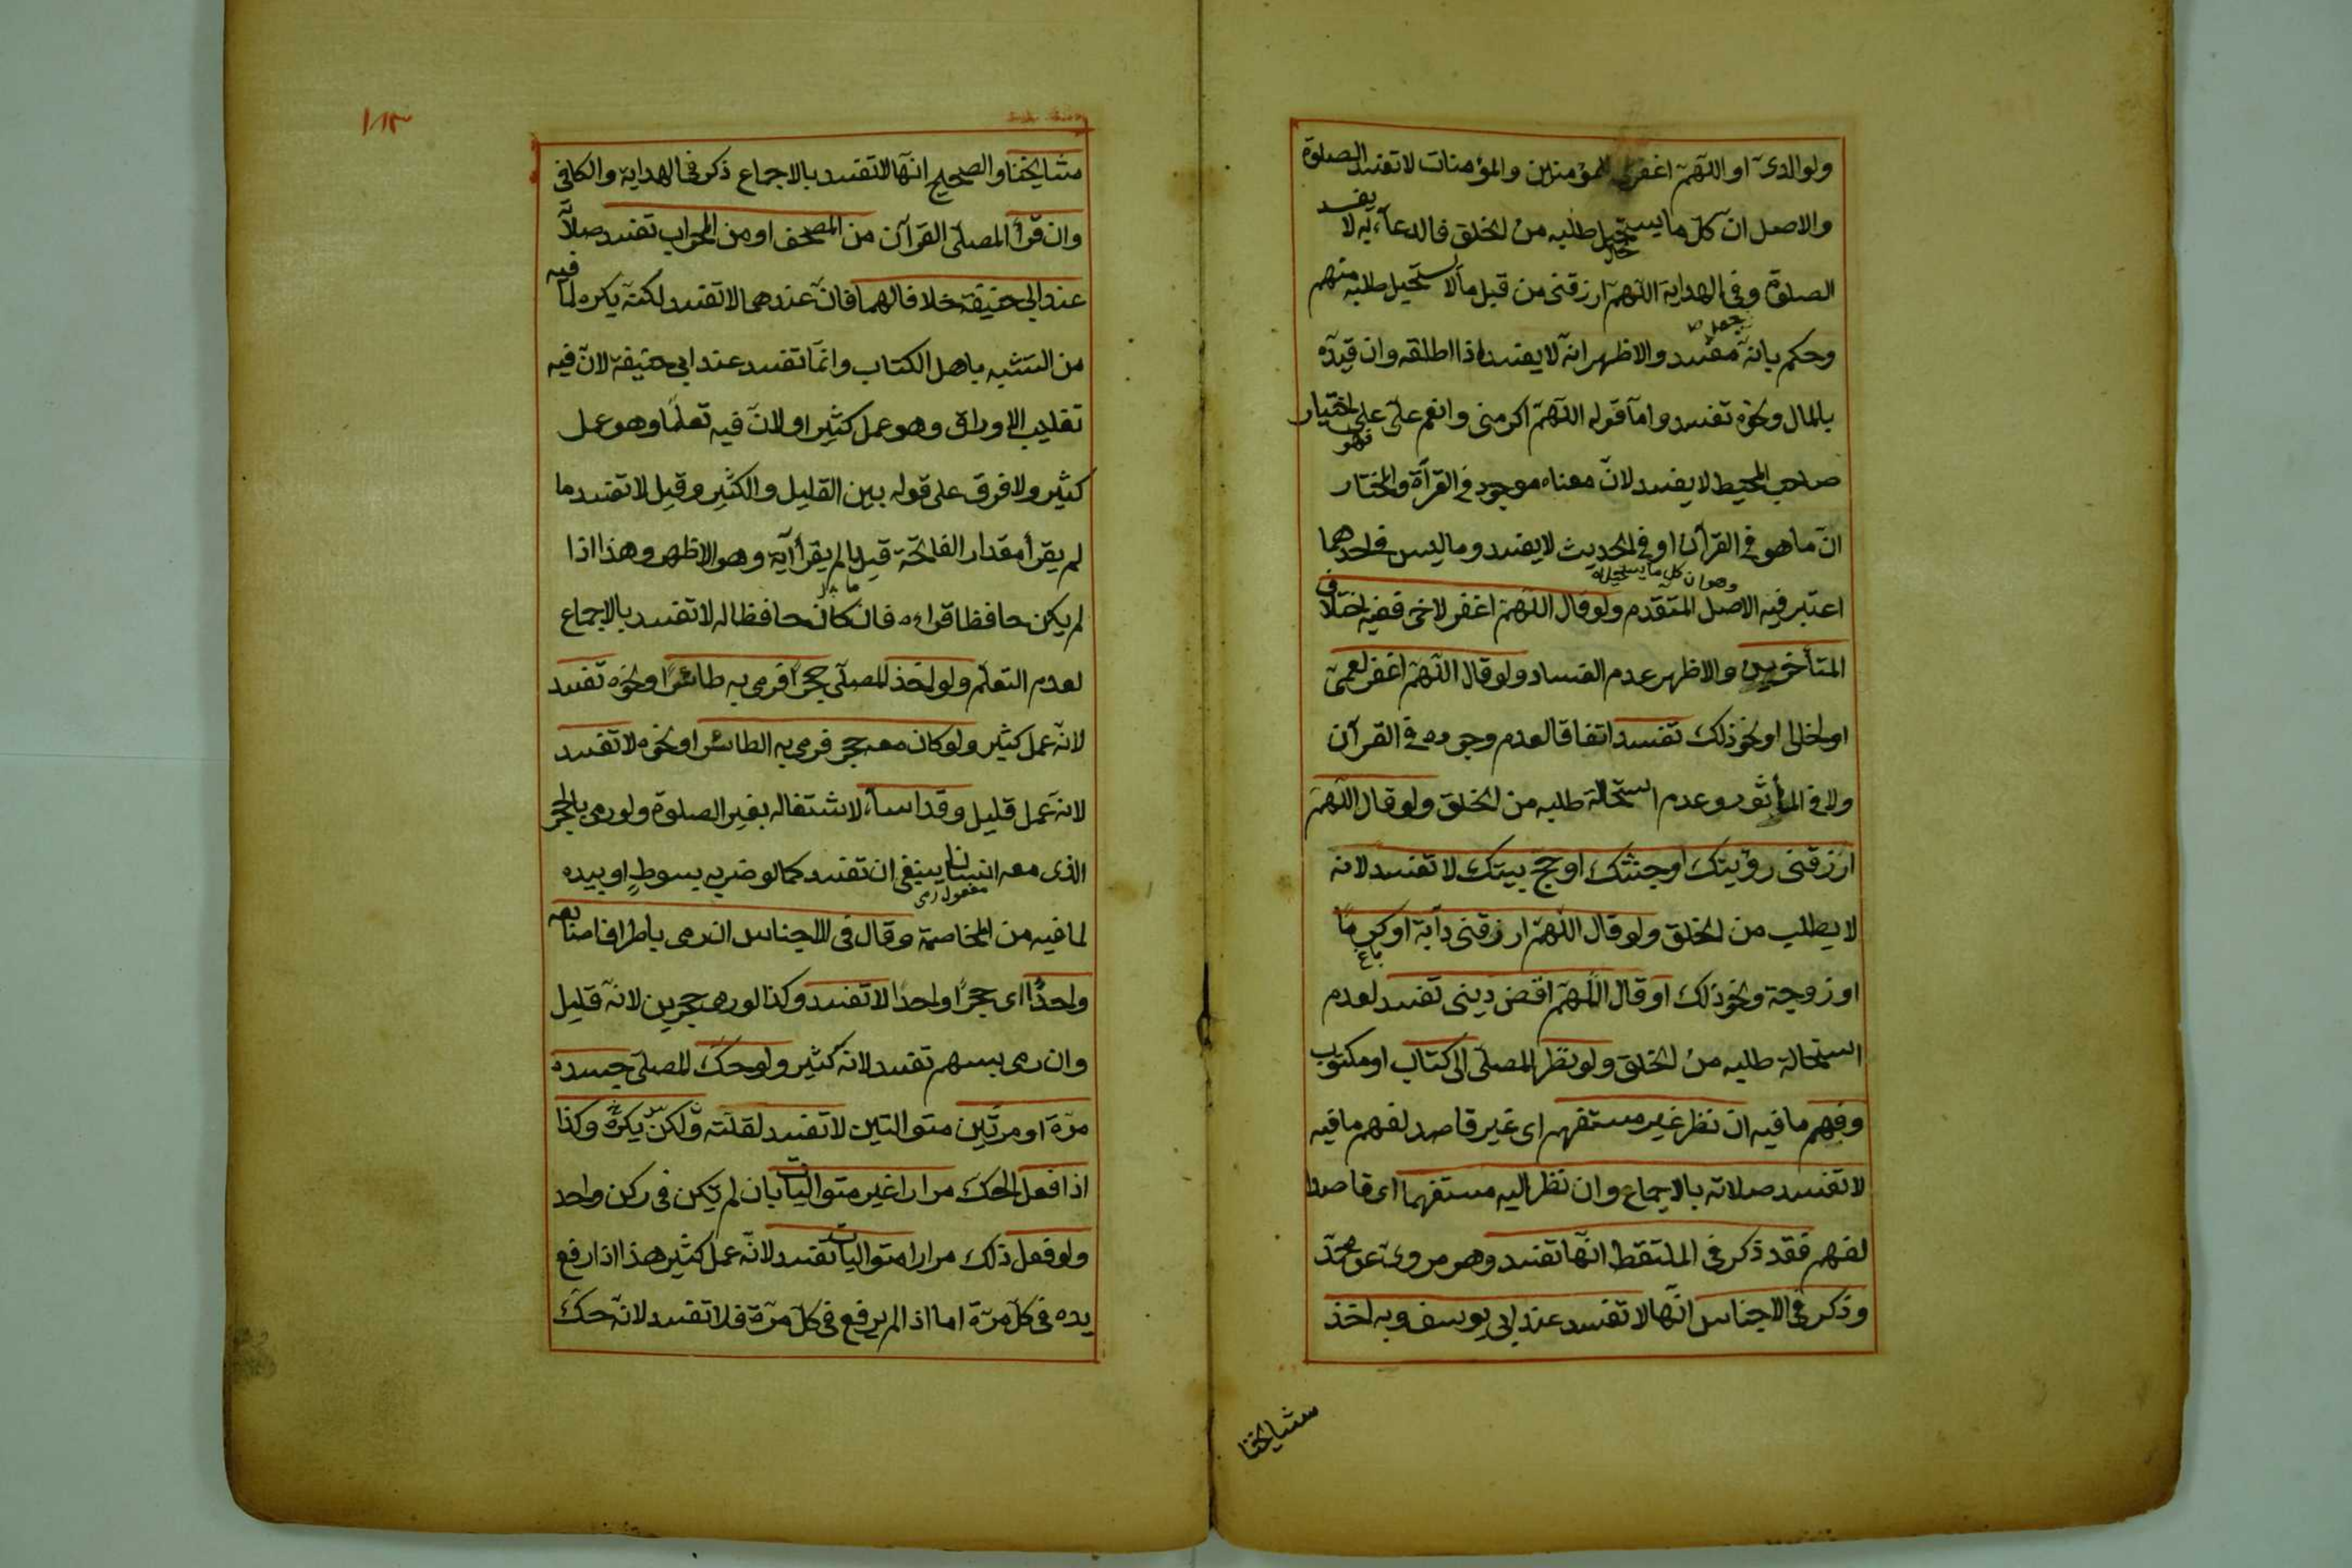 ولوالدىّ او اللّهمّ اغفر لى للمؤمنين والمؤمنات لا تفسد الصلوة
والاصل ان كلّ ما يستحيل طلبه من الخلق فالدعاء به لا يفسد
الصلوة وفى الهداية اللّهمّ ارزقنى من قبل ما لا يستحيل طلبه منهم
وحكم بانّه مفسد والاظهر انّه لا يفسد اذا اطلقه وان قيّده
بالمال ونحوه تفسد وامّا قوله اللّهمّ اكرمنى وانعم علىّ على اختيار
صاحب المحيط لا يفسد لانّ معناه موجود فى القرآن والمختار
انّ ما هو فى القرآن او فى الحديث لا يفسد وما ليس فى احدهما فهو
وهو ان كل ما يستحيل اه
اعتبر فيه الاصل المتقدم ولو قال اللّهمّ اغفر لاخى ففيه اختلاف
المتأخرين والاظهر عدم الفساد ولو قال اللّهمّ اغفر لعمىّ
او لخالى او نحو ذلك تفسد اتفاقا لعدم وجوده فى القرآن
ولا فى المأثور وعدم استحالة طلبه من الخلق ولو قال اللّهمّ
ارزقنى رؤيتك او جنتك او حجّ بيتك لا تفسد لانه
لا يطلب من الخلق ولو قال اللّهمّ ارزقنى دابّة او كرمًا
باغ
او زوجة ونحو ذلك او قال اللّهمّ اقض دينى تفسد لعدم
استحالة طلبه من الخلق ولو نظر المصلّى الى كتاب او مكتوب
وفهم ما فيه ان نظر غير مستفهم اى غير قاصد لفهم ما فيه
لا تفسد صلاته بالاجماع وان نظر اليه مستفهما اى قاصدا
لفهم فقد ذكر فى الملتقط انّها تفسد وهو مروىّ عن محمّد
وذكر فى الاجناس انّها لا تفسد عند ابى يوسف وبه اخذ
مشايخنا
١٨٣
مشايخنا والصحيح انّها لا تفسد بالاجماع ذكر فى الهداية والكافى
وان قرأ المصلّى القرآن من المصحف او من المحراب تفسد صلاته
عند ابى حنيفة خلافا لهما فانّ عندهما لا تفسد لكنّه يكره لما فيه
من التشبه باهل الكتاب وانّما تفسد عند ابى حنيفة لانّ فيه
تقليب الاوراق وهو عمل كثير او لانّ فيه تعلّما وهو عمل
كثير ولا فرق على قوله بين القليل والكثير وقيل لا تفسد ما
لم يقرأ مقدار الفاتحة قيل ما لم يقرأ آية وهو الاظهر وهذا اذا
لم يكن حافظا قراءه فان كان حافظا له لا تفسد بالاجماع
لعدم التعلّم ولو اخذ المصلّى حجرًا فرمى به طائرًا او نحوه تفسد
لانّه عمل كثير ولو كان معه حجر فرمى به الطائر او نحوه لا تفسد
لانه عمل قليل وقد اساء لاشتغاله بغير الصلوة ولو رمى بالحجر
الذى معه انسانا ينبغى ان تفسد كما لو ضربه بسوطٍ او بيده
مفعول رمى
لما فيه من المخاصمة وقال فى الاجناس ان رمى باطراف اصابعه
واحدًا اى حجرًا واحدًا لا تفسد وكذا لو رمى حجرين لانّه قليل
وان رمى بسهم تفسد لانه كثير ولو حكّ المصلّى جسده
مرّة او مرتين متواليتين لا تفسد لقلّته ولكن يكره وكذا
اذا فعل الحكّ مرارا غير متواليات بان لم يكن فى ركن واحد
ولو فعل ذلك مرارا متواليات تفسد لانّه عمل كثير هذا اذا رفع
يده فى كلّ مرّة اما اذا لم يرفع فى كلّ مرّة فلا تفسد لانّه حكّ